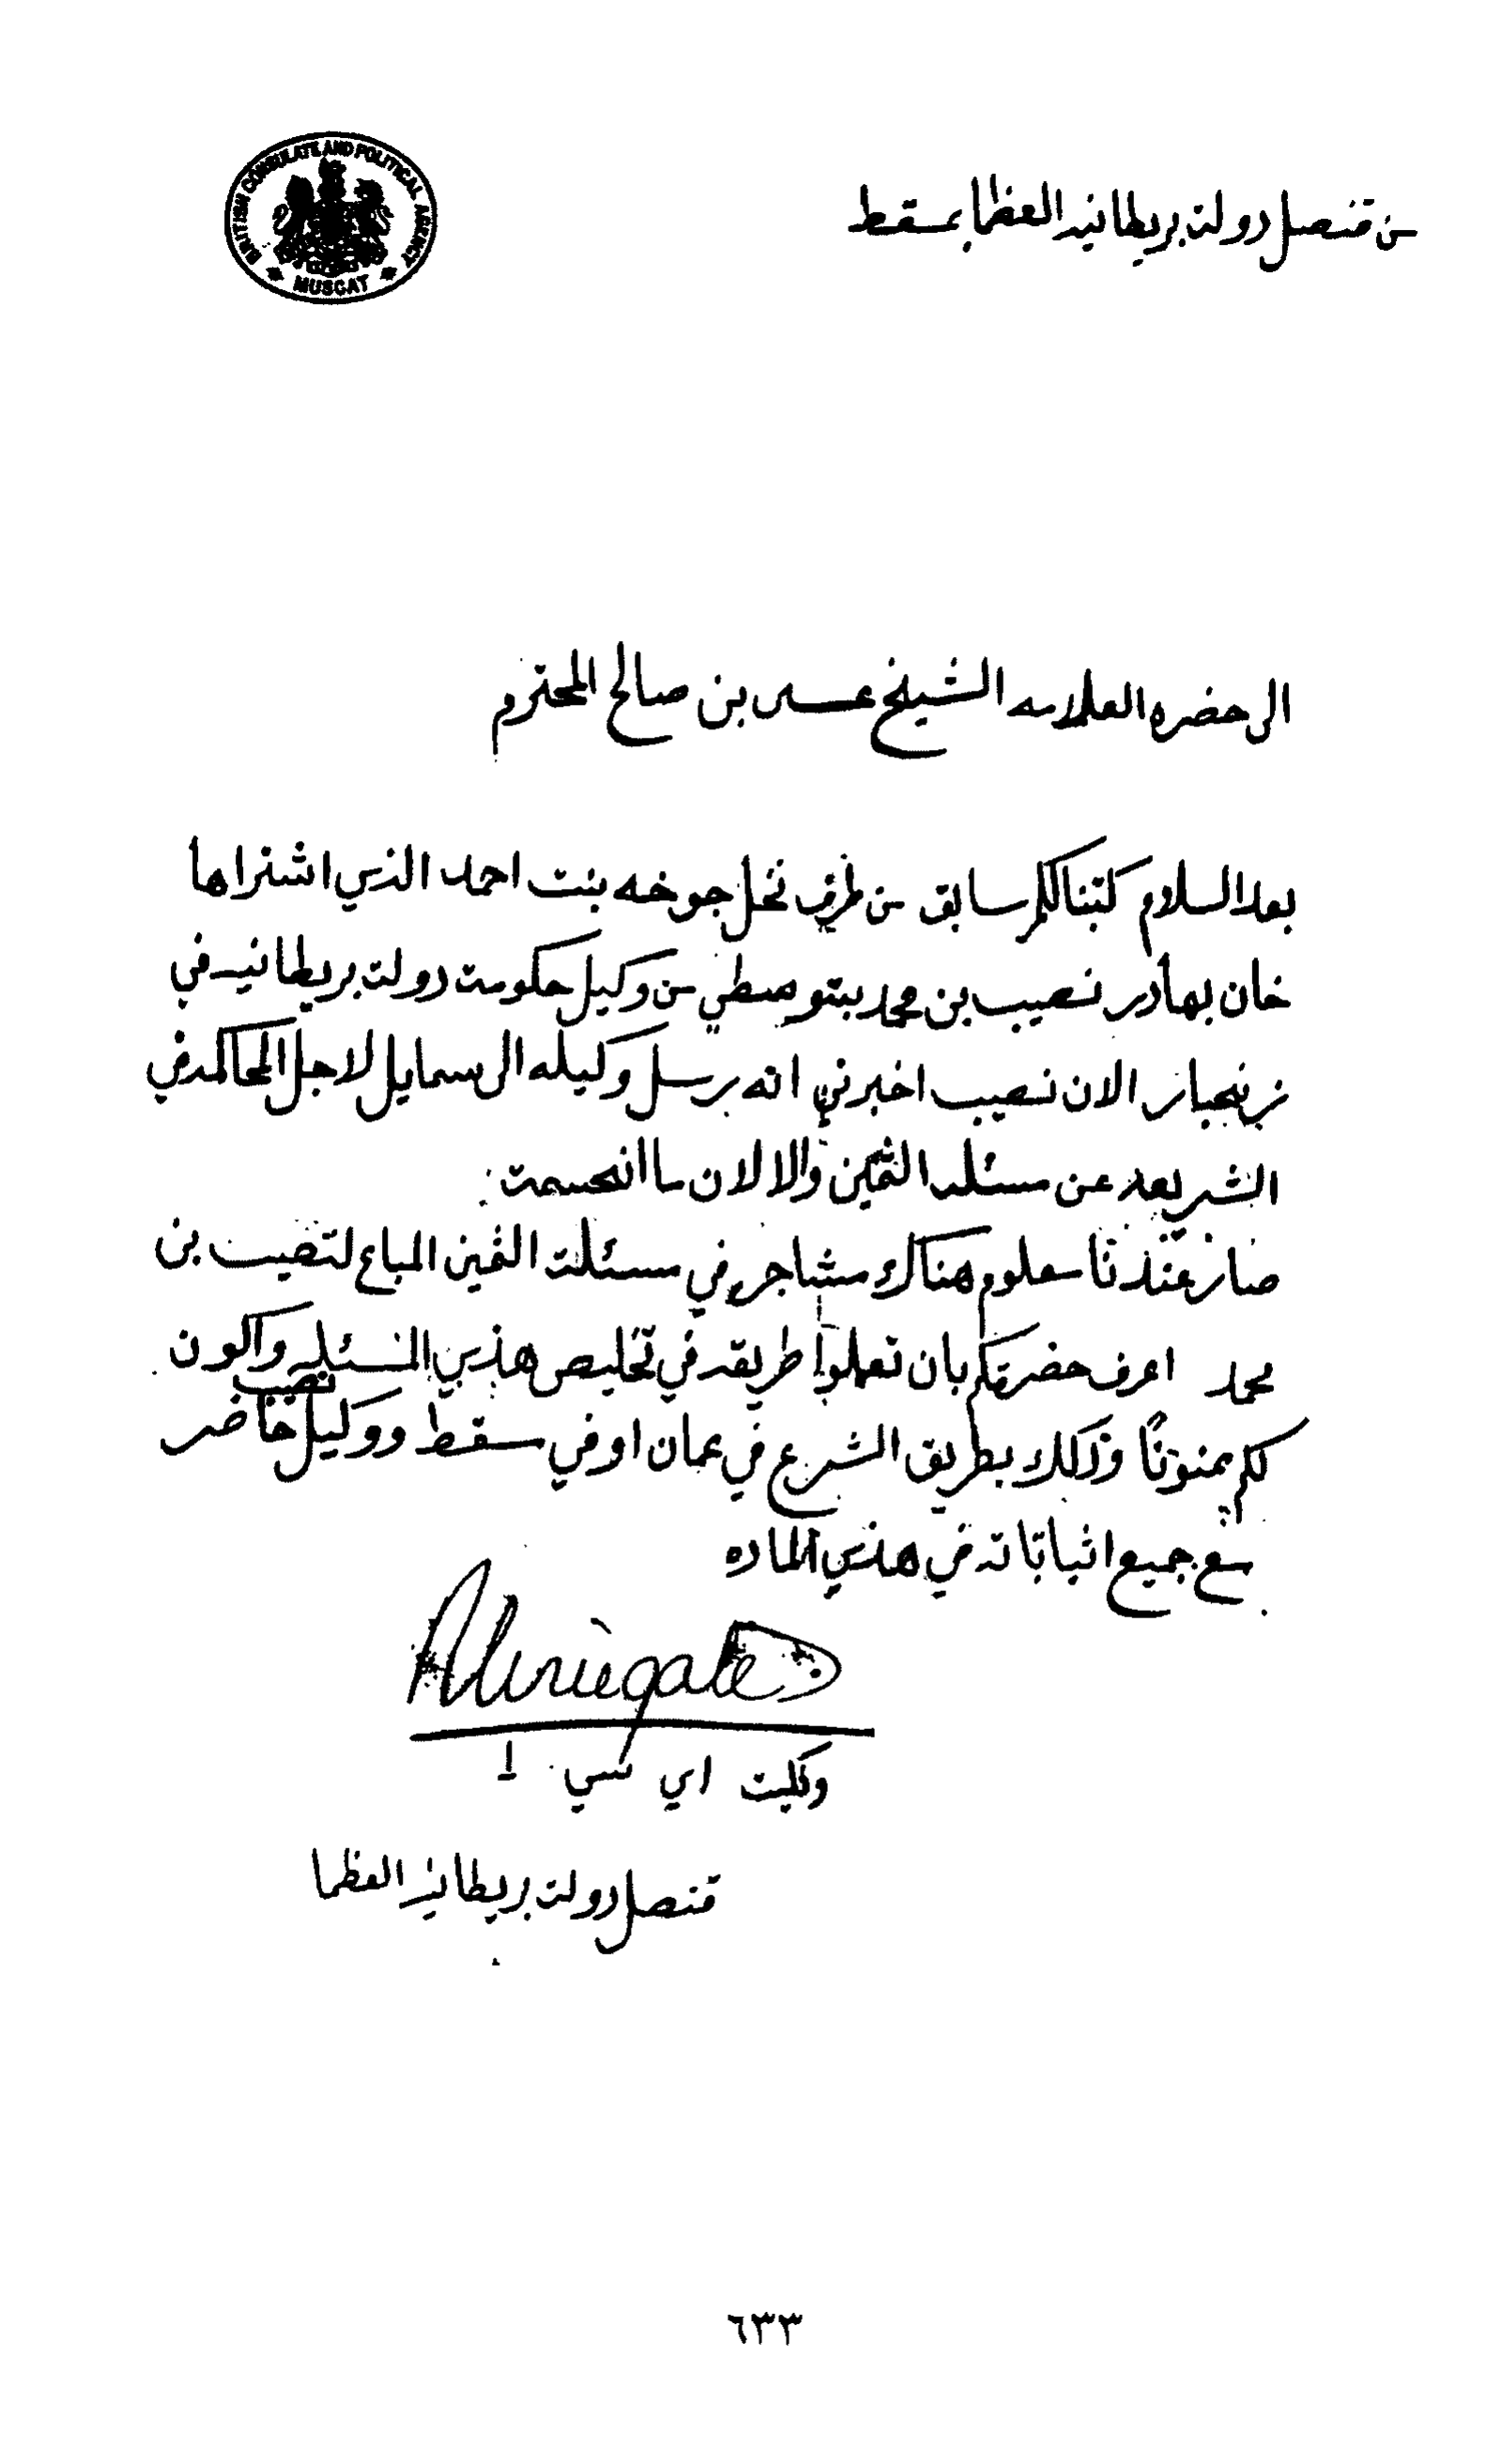 BRITISH CONSULATE AND POLITICAL AGENCY
MUSCAT
من قنصل دولت بريطانيه العظما بمسقط
الى حضره العلامه الشيخ عيسى بن صالح المحترم
بعد السلام كتبنا لكم سابق من طرف نخل جوخه بنت احمد الذي اشتراها
خان بهادر نصيب بن محمد بتوسطي من وكيل حكومت دولت بريطانيه في
زنجبار الان نصيب اخبرني انه يرسل وكيله الى سمايل لاجل المحاكمه في
الشريعه عن مسئله الثمين والا لان ما انحسمت
صار عندنا معلوم هناك مشاجره في مسئلت الثمين المباع لنصيب بن
محمد اعرف حضرتكم بان تعملوا طريقه في تخليص هذي المسئله واكون
لكم ممنونًا وذلك بطريق الشرع في عمان او في مسقط ووكيل نصيب حاضر
مع جميع اثباتاته في هذي الماده
وكيت اي سي
قنصل دولت بريطانيه العظما
٦٣٣